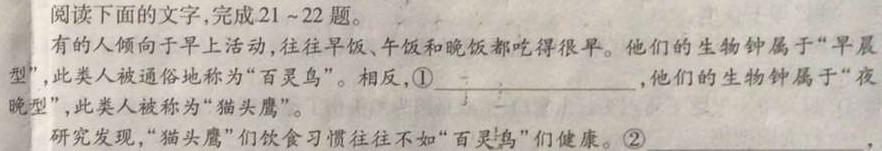 阅读下面的文字,完成21~22题。
有的人倾向于早上活动,往往早饭、午饭和晚饭都吃得很早。他们的生物钟属于“早晨
型”,此类人被通俗地称为“百灵鸟”。相反,①____________,他们的生物钟属于“夜
晚型”,此类人被称为“猫头鹰”。
研究发现,“猫头鹰”们饮食习惯往往不如“百灵鸟”们健康。②____________,